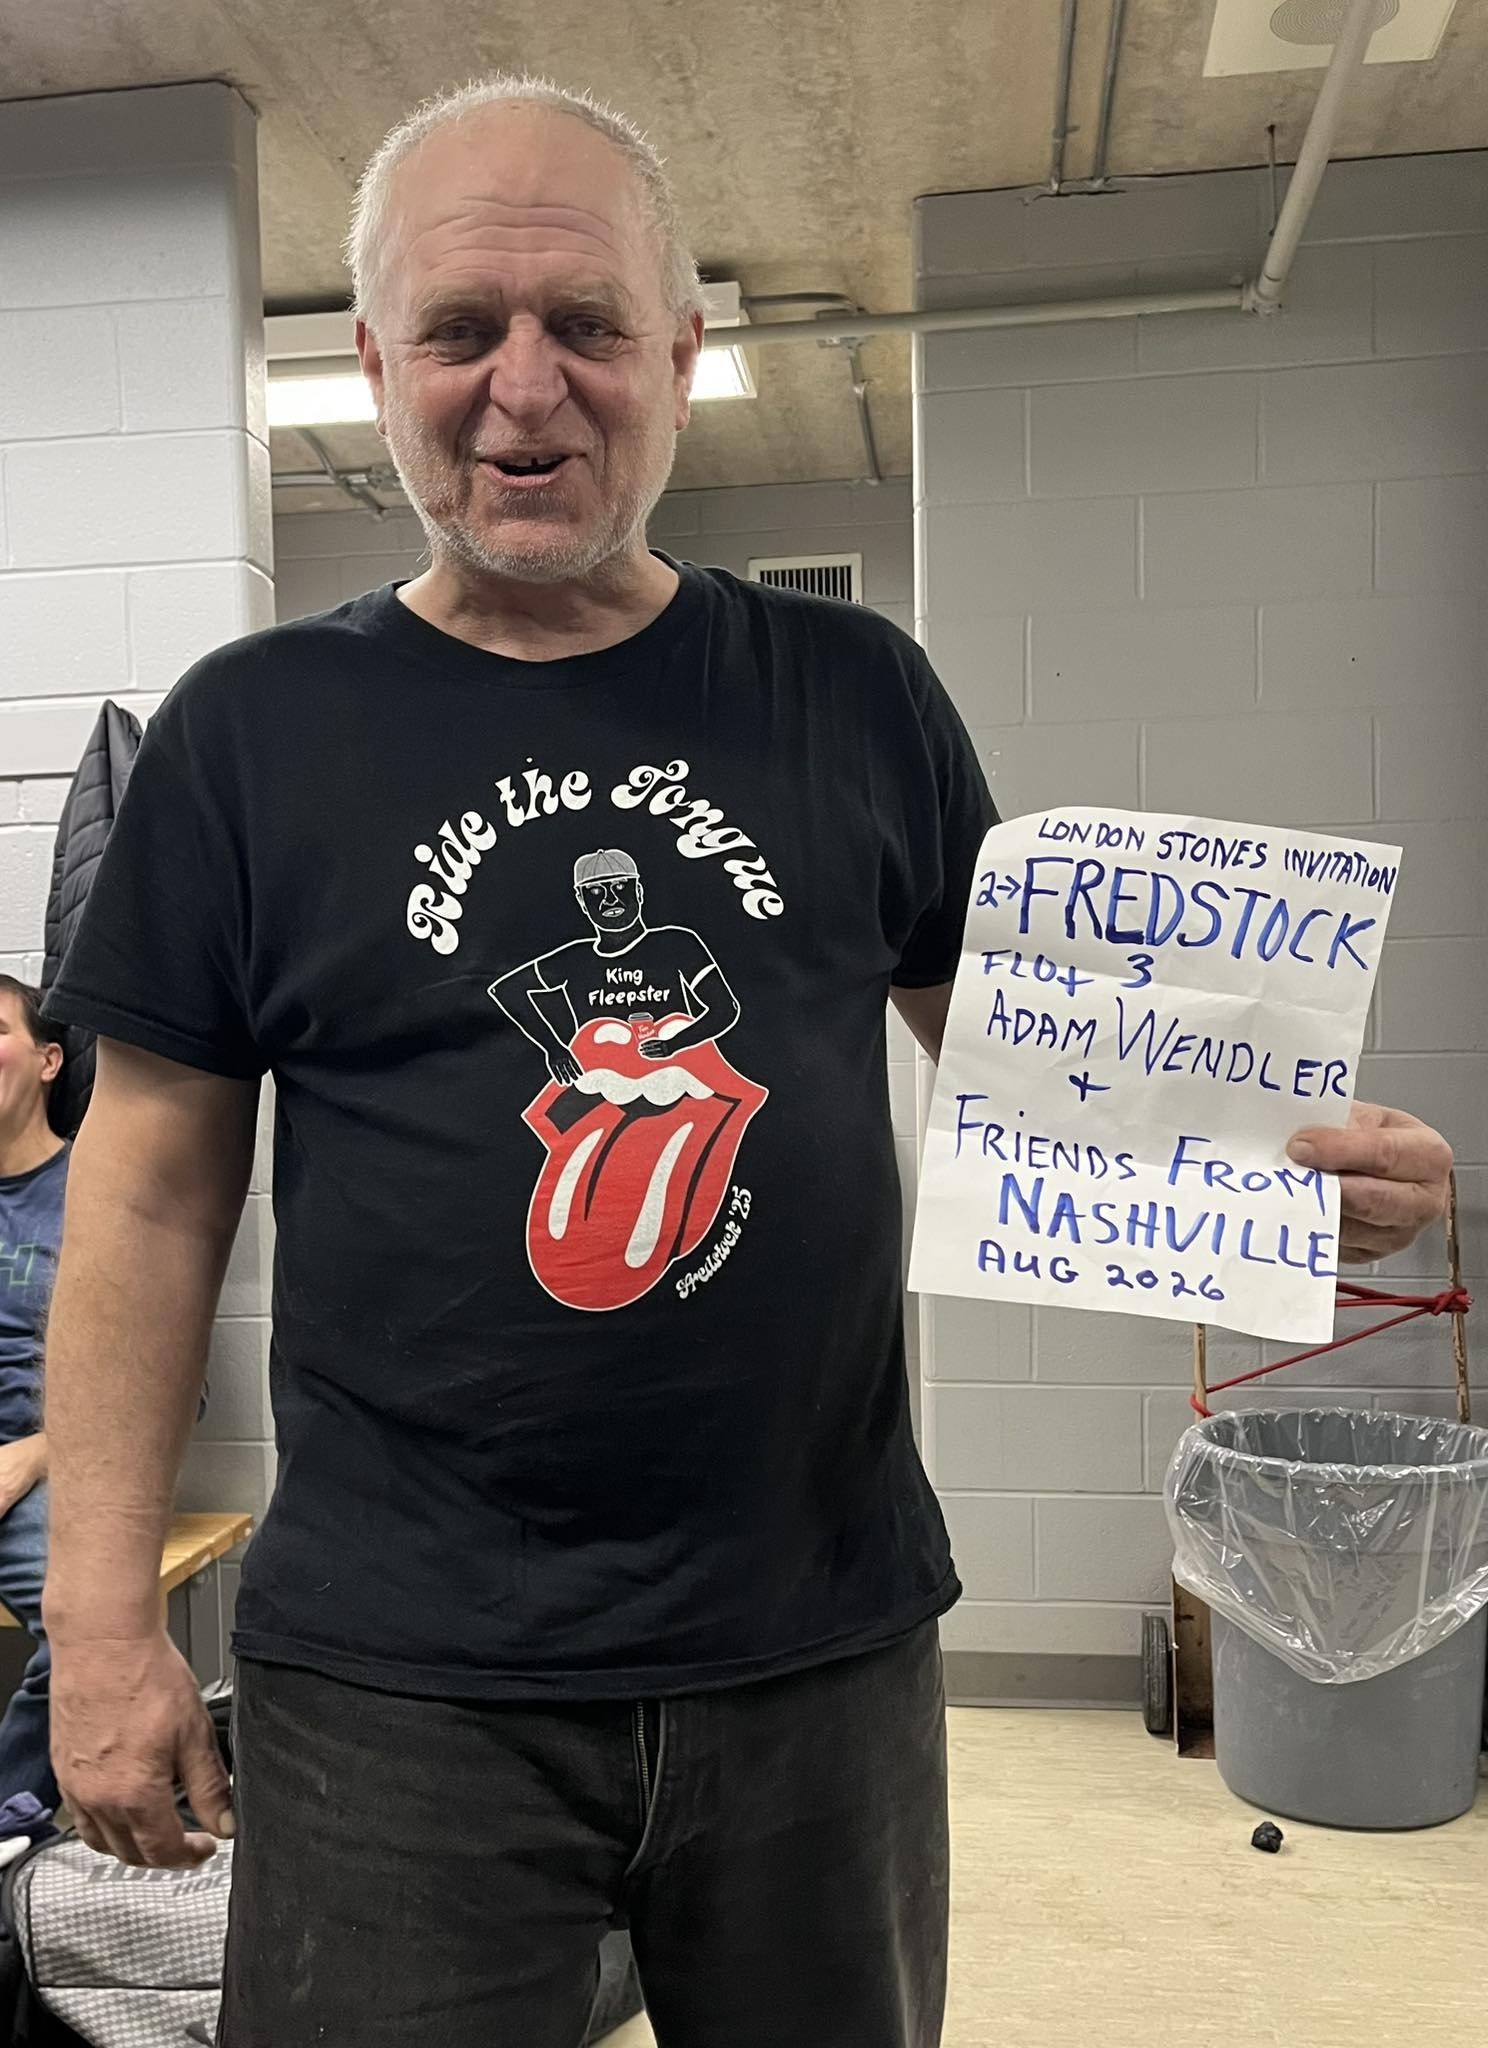 Ride the Tongue
King
Fleepster
Tim
Hortons
Fredstock '25
LONDON STONES INVITATION
2→FREDSTOCK
FLUX 3
ADAM WENDLER
+
FRIENDS FROM
NASHVILLE
AUG 2026